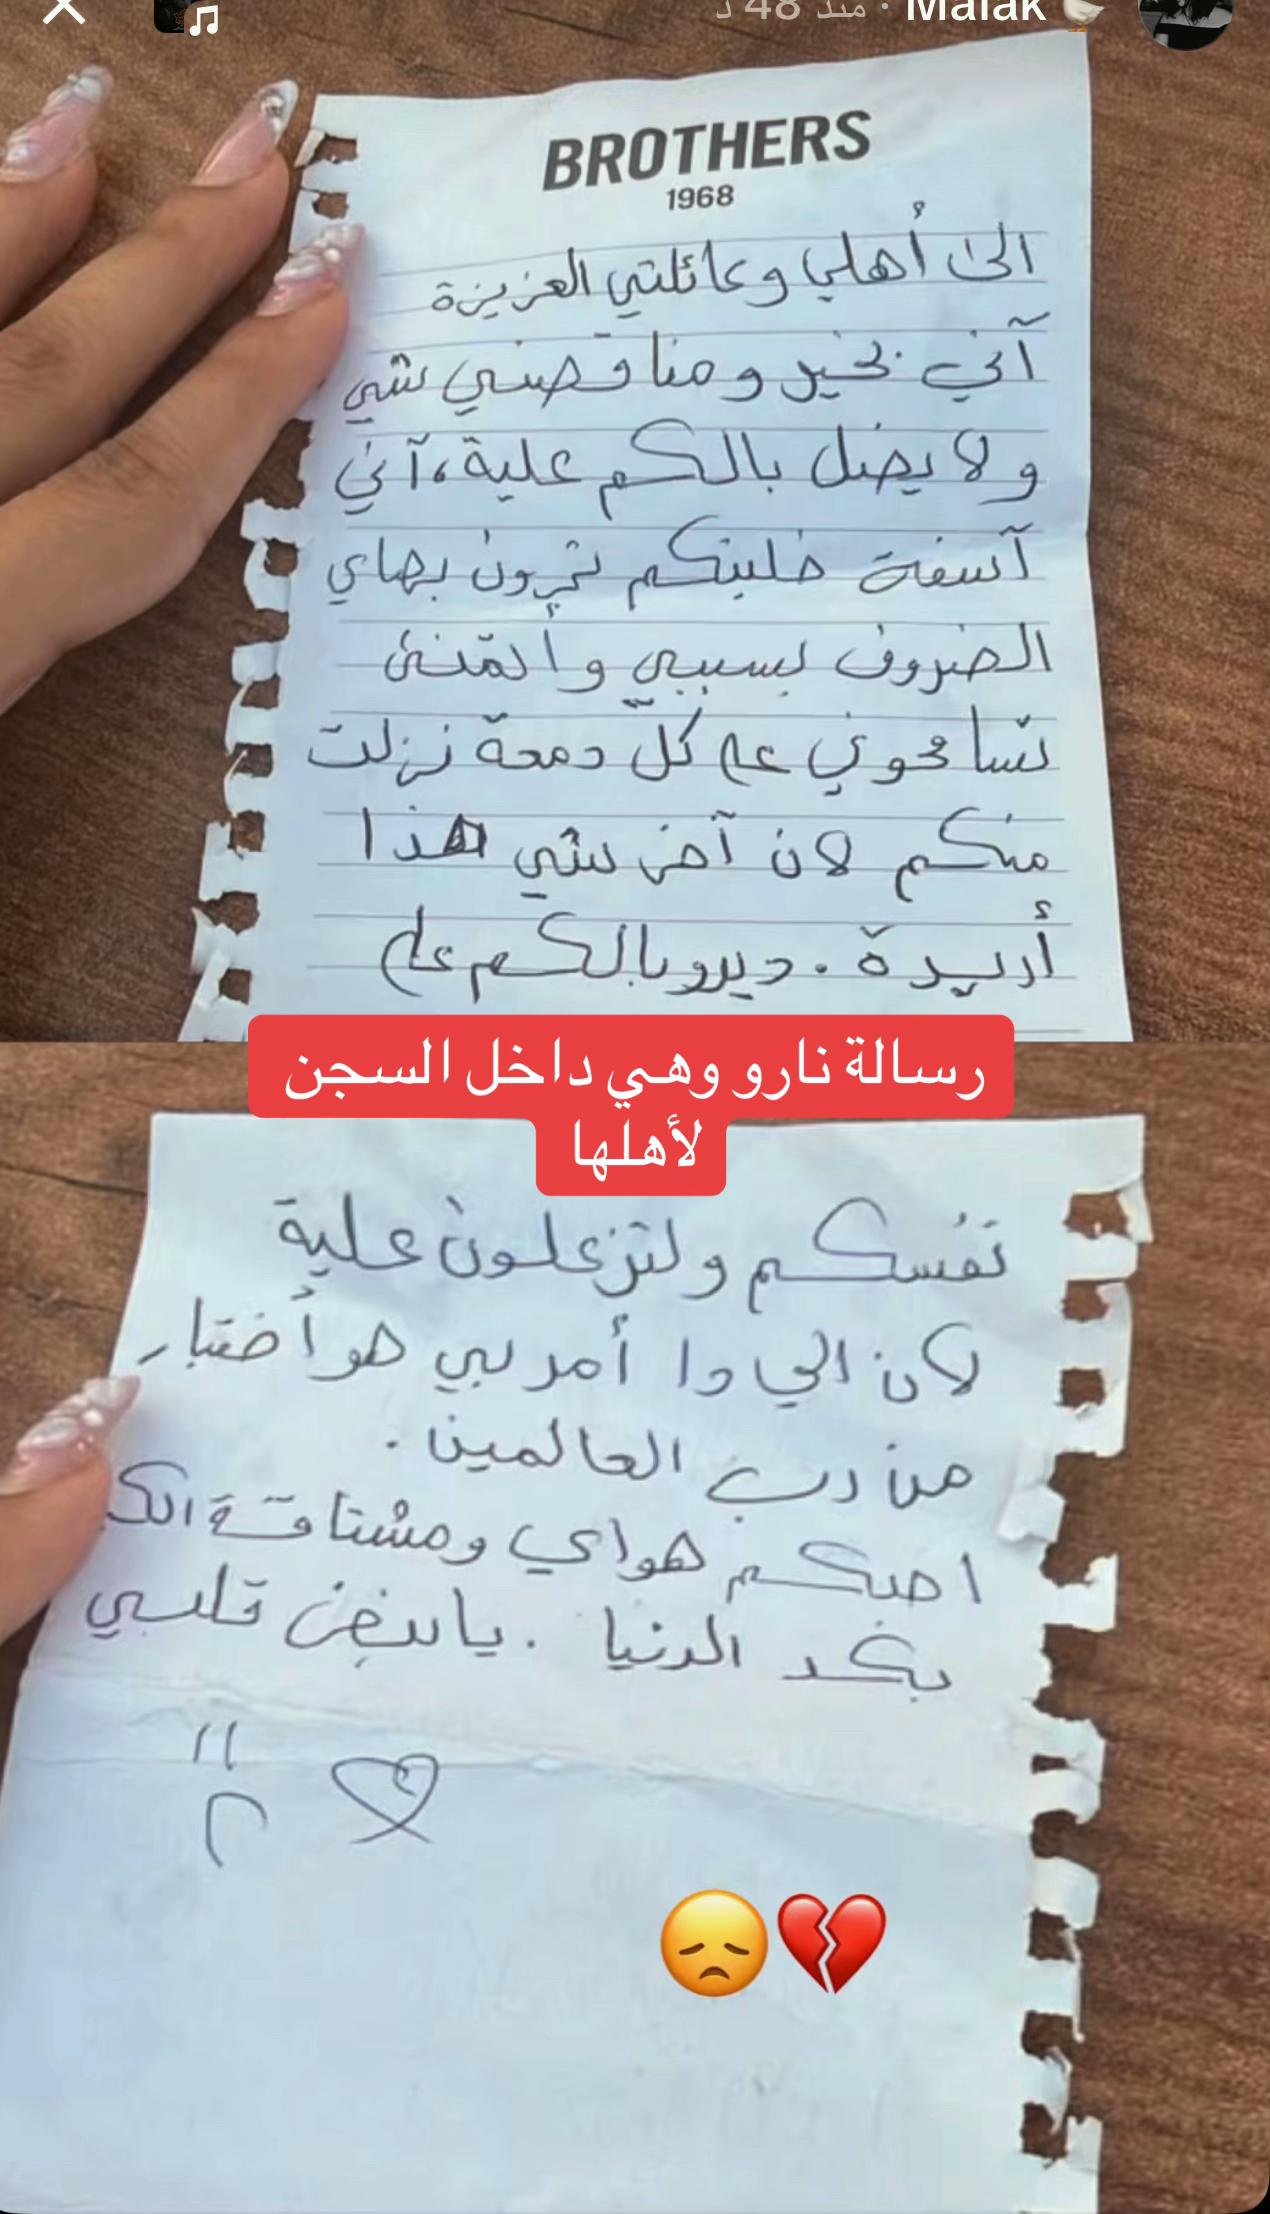 Malak · منذ 48 د
BROTHERS
1968
الى أهلي وعائلتي العزيزة
آني بخير ومناقصني شي
ولا يضل بالكم علية، آني
آسفة خليتكم تمرون بهاي
الضروف بسببي وأتمنى
تسامحوني عله كل دمعة نزلت
منكم لان آخر شي هذا
أريدة. ديرو بالكم عله
رسالة نارو وهي داخل السجن
لأهلها
نفسكم ولتزعلون علية
لان الي دا أمر بي هو أختبار
من رب العالمين.
احبكم هواي ومشتاقة الكم
بكد الدنيا. يا نبض قلبي